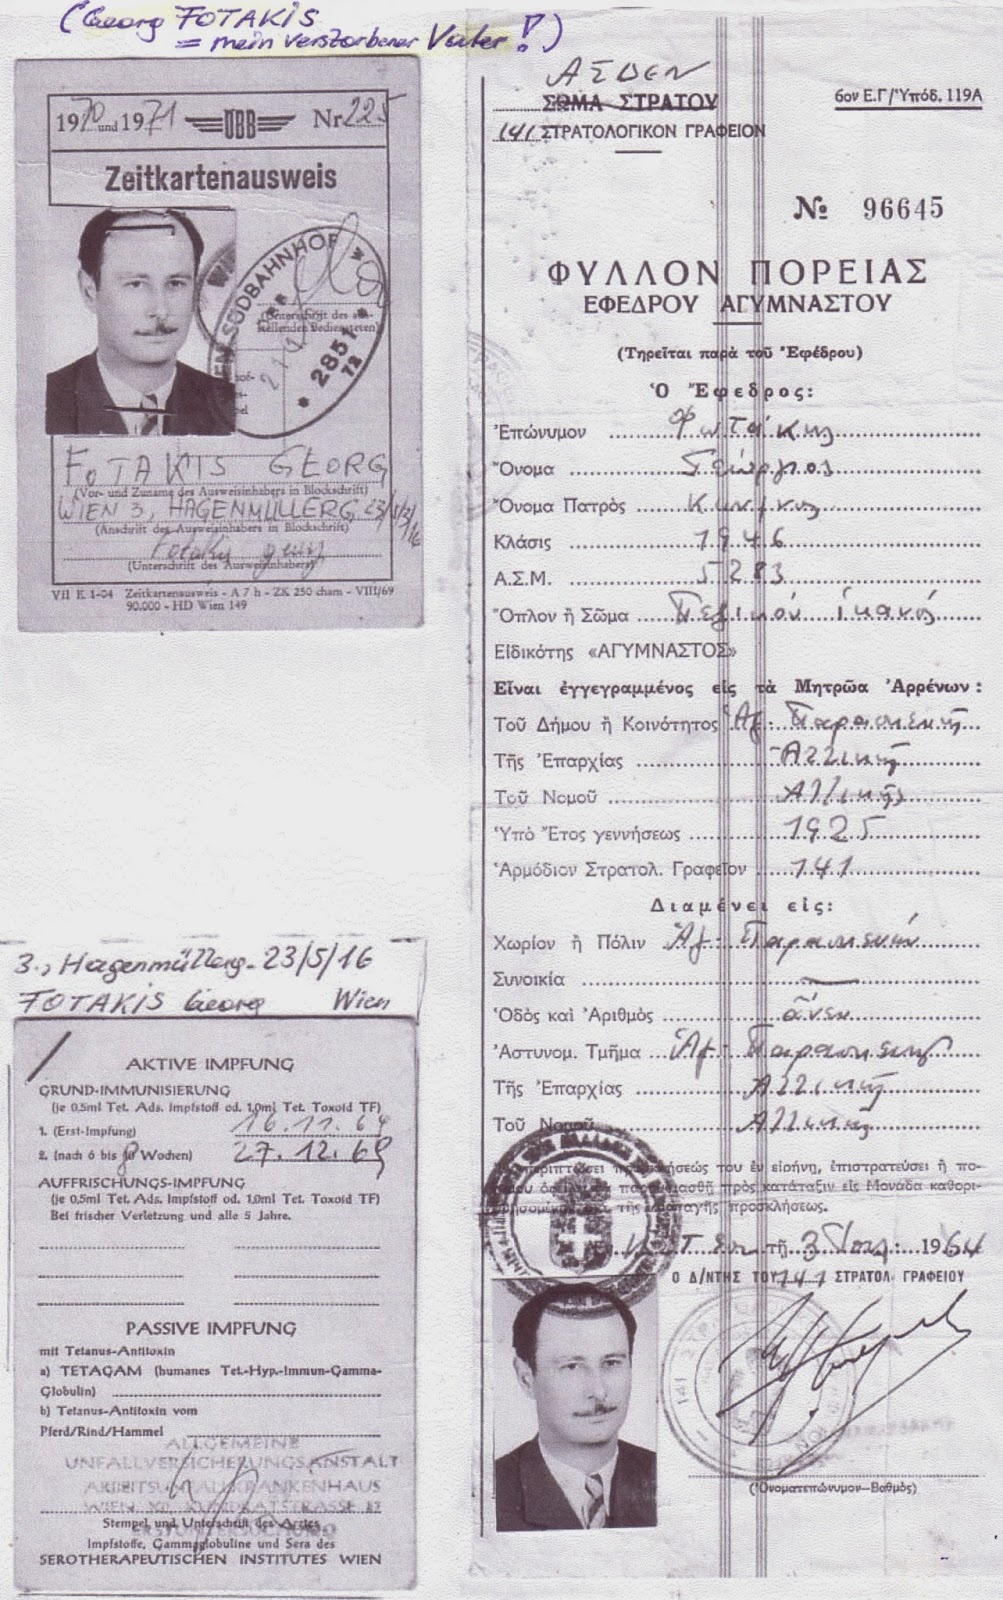 (Georg FOTAKIS
= mein verstorbener Vater!)
1970 und 1971 ÖBB Nr 225
Zeitkartenausweis
WIEN SÜDBAHNHOF
(Unterschrift des aus-
stellenden Bediensteten)
2851
72
FOTAKIS GEORG
(Vor- und Zuname des Ausweisinhabers in Blockschrift)
WIEN 3, HAGENMÜLLERG. 23/5/16
(Anschrift des Ausweisinhabers in Blockschrift)
(Unterschrift des Ausweisinhabers)
VII K 1-04 Zeitkartenausweis - A 7 h - ZK 250 cham - VIII/69
90.000 - HD Wien 149
3., Hagenmüllerg. 23/5/16
FOTAKIS Georg Wien
AKTIVE IMPFUNG
GRUND-IMMUNISIERUNG
(je 0,5ml Tet. Ads. Impfstoff od. 1,0ml Tet. Toxoid TF)
1. (Erst-Impfung) 16.11.69
2. (nach 6 bis 8 Wochen) 27.12.69
AUFFRISCHUNGS-IMPFUNG
(je 0,5ml Tet. Ads. Impfstoff od. 1,0ml Tet. Toxoid TF)
Bei frischer Verletzung und alle 5 Jahre.
PASSIVE IMPFUNG
mit Tetanus-Antitoxin
a) TETAGAM (humanes Tet.-Hyp.-Immun-Gamma-
Globulin)
b) Tetanus-Antitoxin vom
Pferd/Rind/Hammel
ALLGEMEINE
UNFALLVERSICHERUNGSANSTALT
ARBEITSUNFALLKRANKENHAUS
WIEN XII, KUNDRATSTRASSE 37
Stempel und Unterschrift des Arztes
ERSTUNTERSUCHUNG
Impfstoffe, Gammaglobuline und Sera des
SEROTHERAPEUTISCHEN INSTITUTES WIEN
ΑΣΔΕΝ
ΣΩΜΑ ΣΤΡΑΤΟΥ
6ον Ε.Γ/Ὑπόδ. 119Α
141 ΣΤΡΑΤΟΛΟΓΙΚΟΝ ΓΡΑΦΕΙΟΝ
№ 96645
ΦΥΛΛΟΝ ΠΟΡΕΙΑΣ
ΕΦΕΔΡΟΥ ΑΓΥΜΝΑΣΤΟΥ
(Τηρεῖται παρὰ τοῦ Ἐφέδρου)
Ὁ Ἔφεδρος:
Ἐπώνυμον Φωτάκης
Ὄνομα Γεώργιος
Ὄνομα Πατρὸς
Κλάσις 1946
Α.Σ.Μ. 5283
Ὅπλον ἢ Σῶμα Πεζικόν ἱκανός
Εἰδικότης «ΑΓΥΜΝΑΣΤΟΣ»
Εἶναι ἐγγεγραμμένος εἰς τὰ Μητρῶα Ἀρρένων:
Τοῦ Δήμου ἢ Κοινότητος Ἁγ. Παρασκευῆς
Τῆς Ἐπαρχίας Ἀττικῆς
Τοῦ Νομοῦ Ἀττικῆς
Ὑπὸ Ἔτος γεννήσεως 1925
Ἁρμόδιον Στρατολ. Γραφεῖον 141
Διαμένει εἰς:
Χωρίον ἢ Πόλιν Ἁγ. Παρασκευήν
Συνοικία
Ὁδὸς καὶ Ἀριθμὸς ἄνευ
Ἀστυνομ. Τμῆμα Ἁγ. Παρασκευῆς
Τῆς Ἐπαρχίας Ἀττικῆς
Τοῦ Νομοῦ Ἀττικῆς
περιπτώσει προσκλήσεώς του ἐν εἰρήνῃ, ἐπιστρατεύσει ἢ πο-
λέμου ὀφείλει νὰ παρουσιασθῇ πρὸς κατάταξιν εἰς Μονάδα καθορι-
τῆς διαταγῆς προσκλήσεως.
τῇ 3 1964
Ο Δ/ΝΤΗΣ ΤΟΥ 141 ΣΤΡΑΤΟΛ. ΓΡΑΦΕΙΟΥ
(Ὀνοματεπώνυμον—Βαθμὸς)